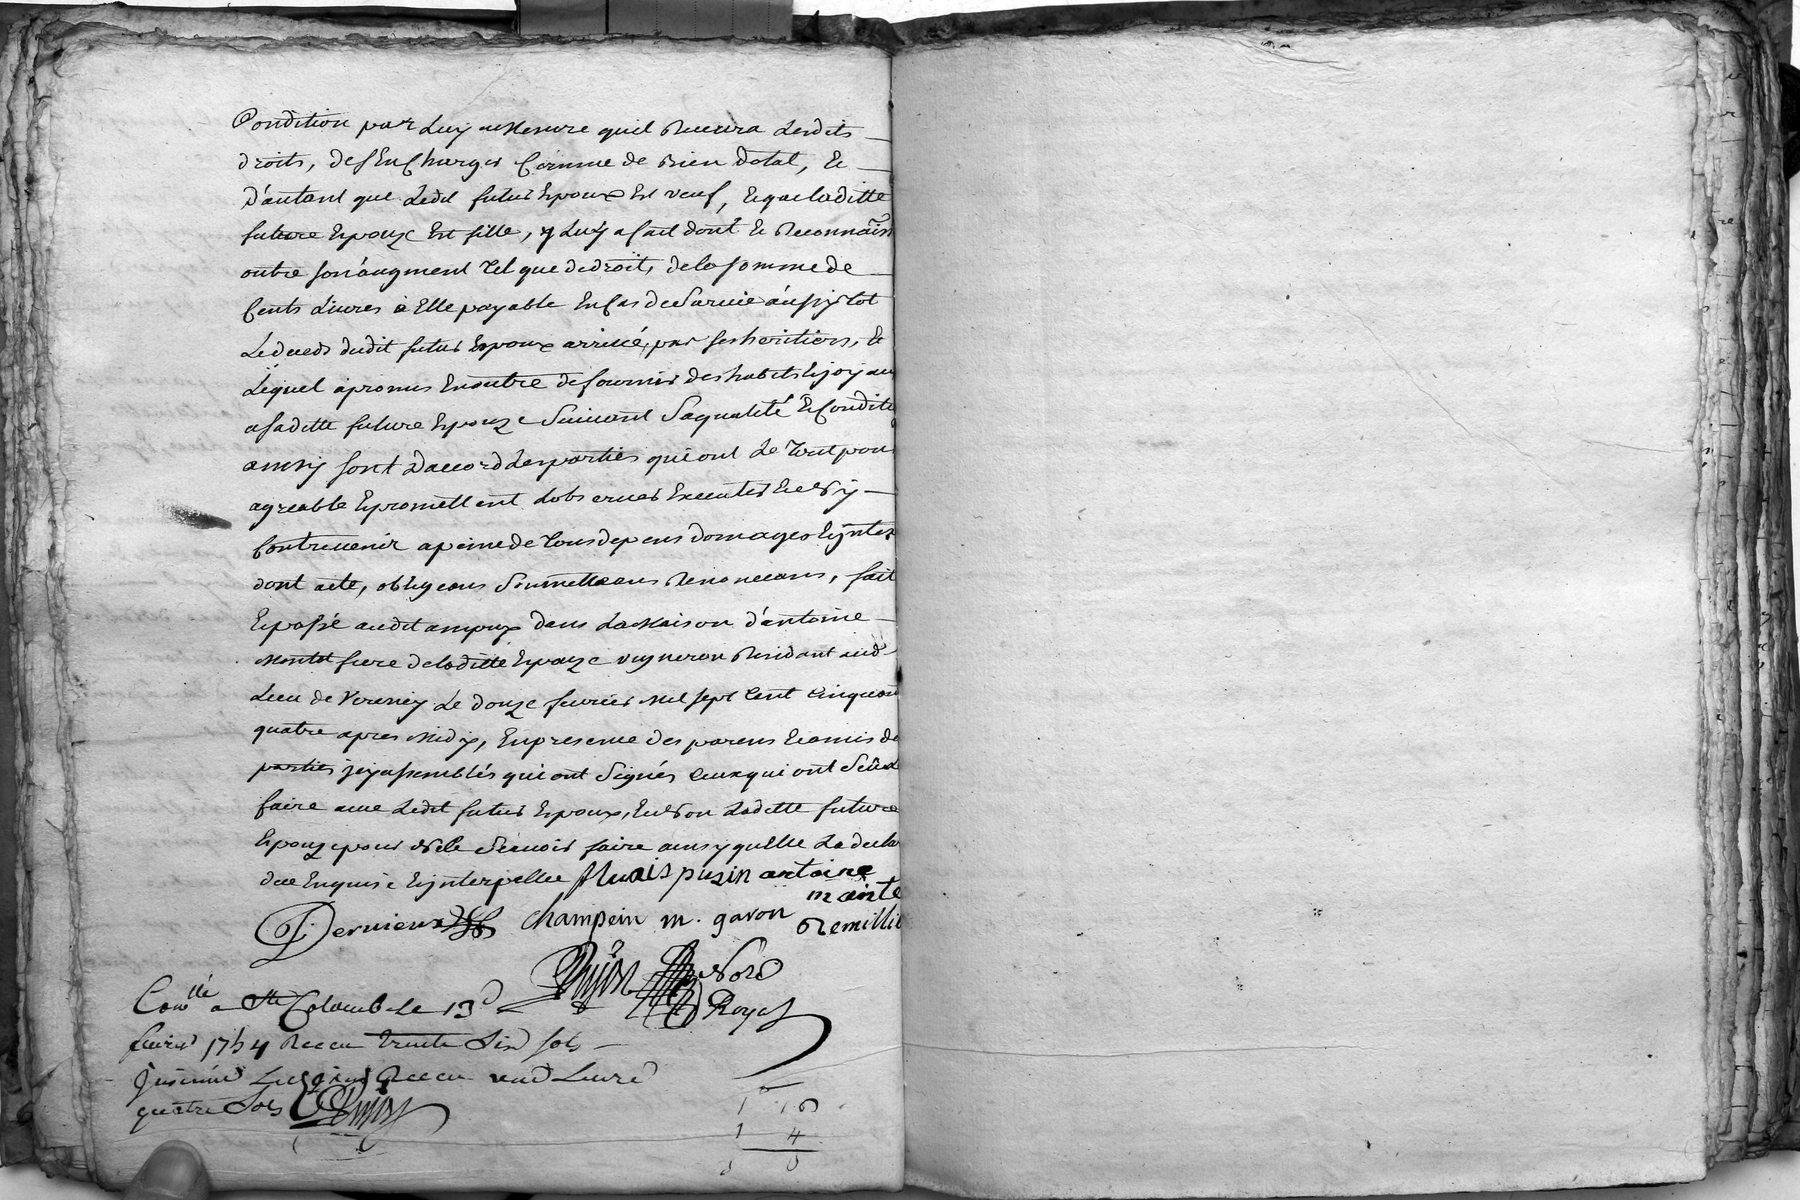 Condition par Luy a Mesure quil Recevra Lesdits
droits, des En Charger Comme de Bien dotal, Et
D'autant que Ledit futur Epoux Est veuf, Et que laditte
future Epouze Est fille, y Luy a fait dont Et Reconnais
outre son augment tel que de droit, de la somme de
Cents Livres a Elle payable En Cas de Survie aussy tot
Le deceds dudit futur Epoux arrivé, par ses heritiers, Et
Lequel a promis En outre de fournir des habits Et joyaux
a saditte future Epouze Suivant Sa qualité Et Condit
ainsy sont Daccord Les parties qui ont Le tout pour
agreable Et promettent Lobserver Executer Et Ny
Contrevenir a peine de tous depens domages Et Inter
dont acte, obligeans Soumettans Renoncans, fait
Et passé audit ampuy dans La Maison d'antoine
frere de laditte Epouze vigneron Residant aud
Lieu de Le douze fevrier Mil sept Cent Cinquan
quatre apres Midy, En presence des parens Et amis de
parties icy assemblés qui ont Signés Ceux qui ont Sçu Le
faire avec Ledit futur Epoux, Et Non Laditte future
Epouze pour Ne le Sçavoir faire ainsy quElle La declar
dee Enquise Et Interpellee puzin antoine
Dervieux Champein m. gavon Remillie
Puzin Nore
Royal
Conllé a Ste Colombe Le 13d
fevrier 1754 Receu trente Six sols
Insinué Receu une Livre
quatre Sols Puzin
1 16
1 4